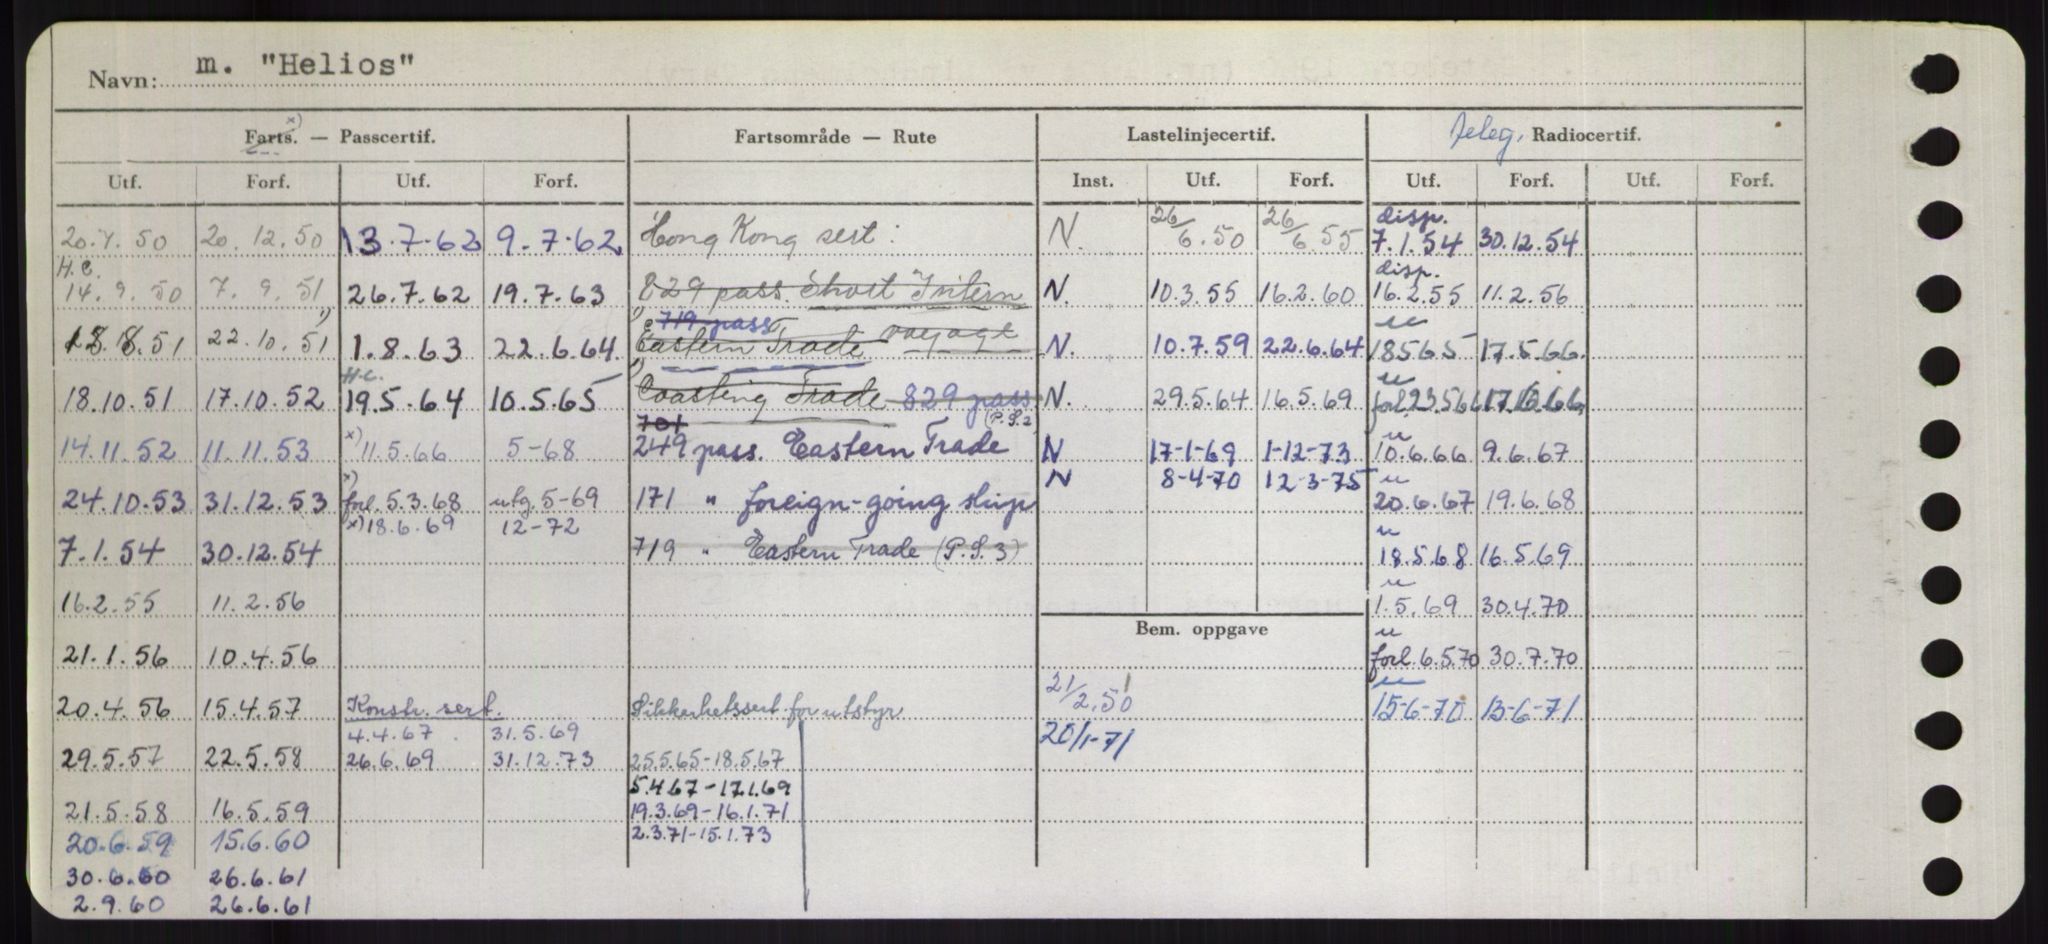 Navn: m. "Helios"
Farts. x) — Passcertif. Fartsområde — Rute Lastelinjecertif. Teleg. Radiocertif.
Utf. Forf. Utf. Forf. Inst. Utf. Forf. Utf. Forf. Utf. Forf.
disp.
20.7.50 20.12.50 13.7.62 9.7.62 Hong Kong sert: N. 26/6.50 26/6.55 7.1.54 30.12.54
H.C. disp.
14.9.50 7.9.51 26.7.62 19.7.63 829 pass. Short Intern N. 10.3.55 16.2.60 16.2.55 11.2.56
719 pass voyage
18.8.51 22.10.51 1) 1.8.63 22.6.64 Eastern Trade N. 10.7.59 22.6.64 18.5.65 17.5.66
H.C.
18.10.51 17.10.52 19.5.64 10.5.65 Coasting Trade 829 pass N. 29.5.64 16.5.69 forl. 23.5.66 17.6.66
701 (P.S.2)
14.11.52 11.11.53 x) 11.5.66 5-68 249 pass. Eastern Trade N 17-1-69 1-12-73 10.6.66 9.6.67
N 8-4-70 12-3-75
24.10.53 31.12.53 x) forl. 5.3.68 utg. 5-69 171 " foreign-going ship 20.6.67 19.6.68
x) 18.6.69 12-72
7.1.54 30.12.54 719 " Eastern Trade (P.S.3) 18.5.68 16.5.69
16.2.55 11.2.56 1.5.69 30.4.70
Bem. oppgave
21.1.56 10.4.56 forl. 6.5.70 30.7.70
20.4.56 15.4.57 Konstr. sert. Sikkerhetssert for utstyr 21/2.50 15-6-70 13-6-71
4.4.67 31.5.69 20/1-71
29.5.57 22.5.58 26.6.69 31.12.73 25.5.65-18.5.67
5.4.67-17.1.69
21.5.58 16.5.59 19.3.69-16.1.71
20.6.59 15.6.60 2.3.71-15.1.73
30.6.60 26.6.61
2.9.60 26.6.61